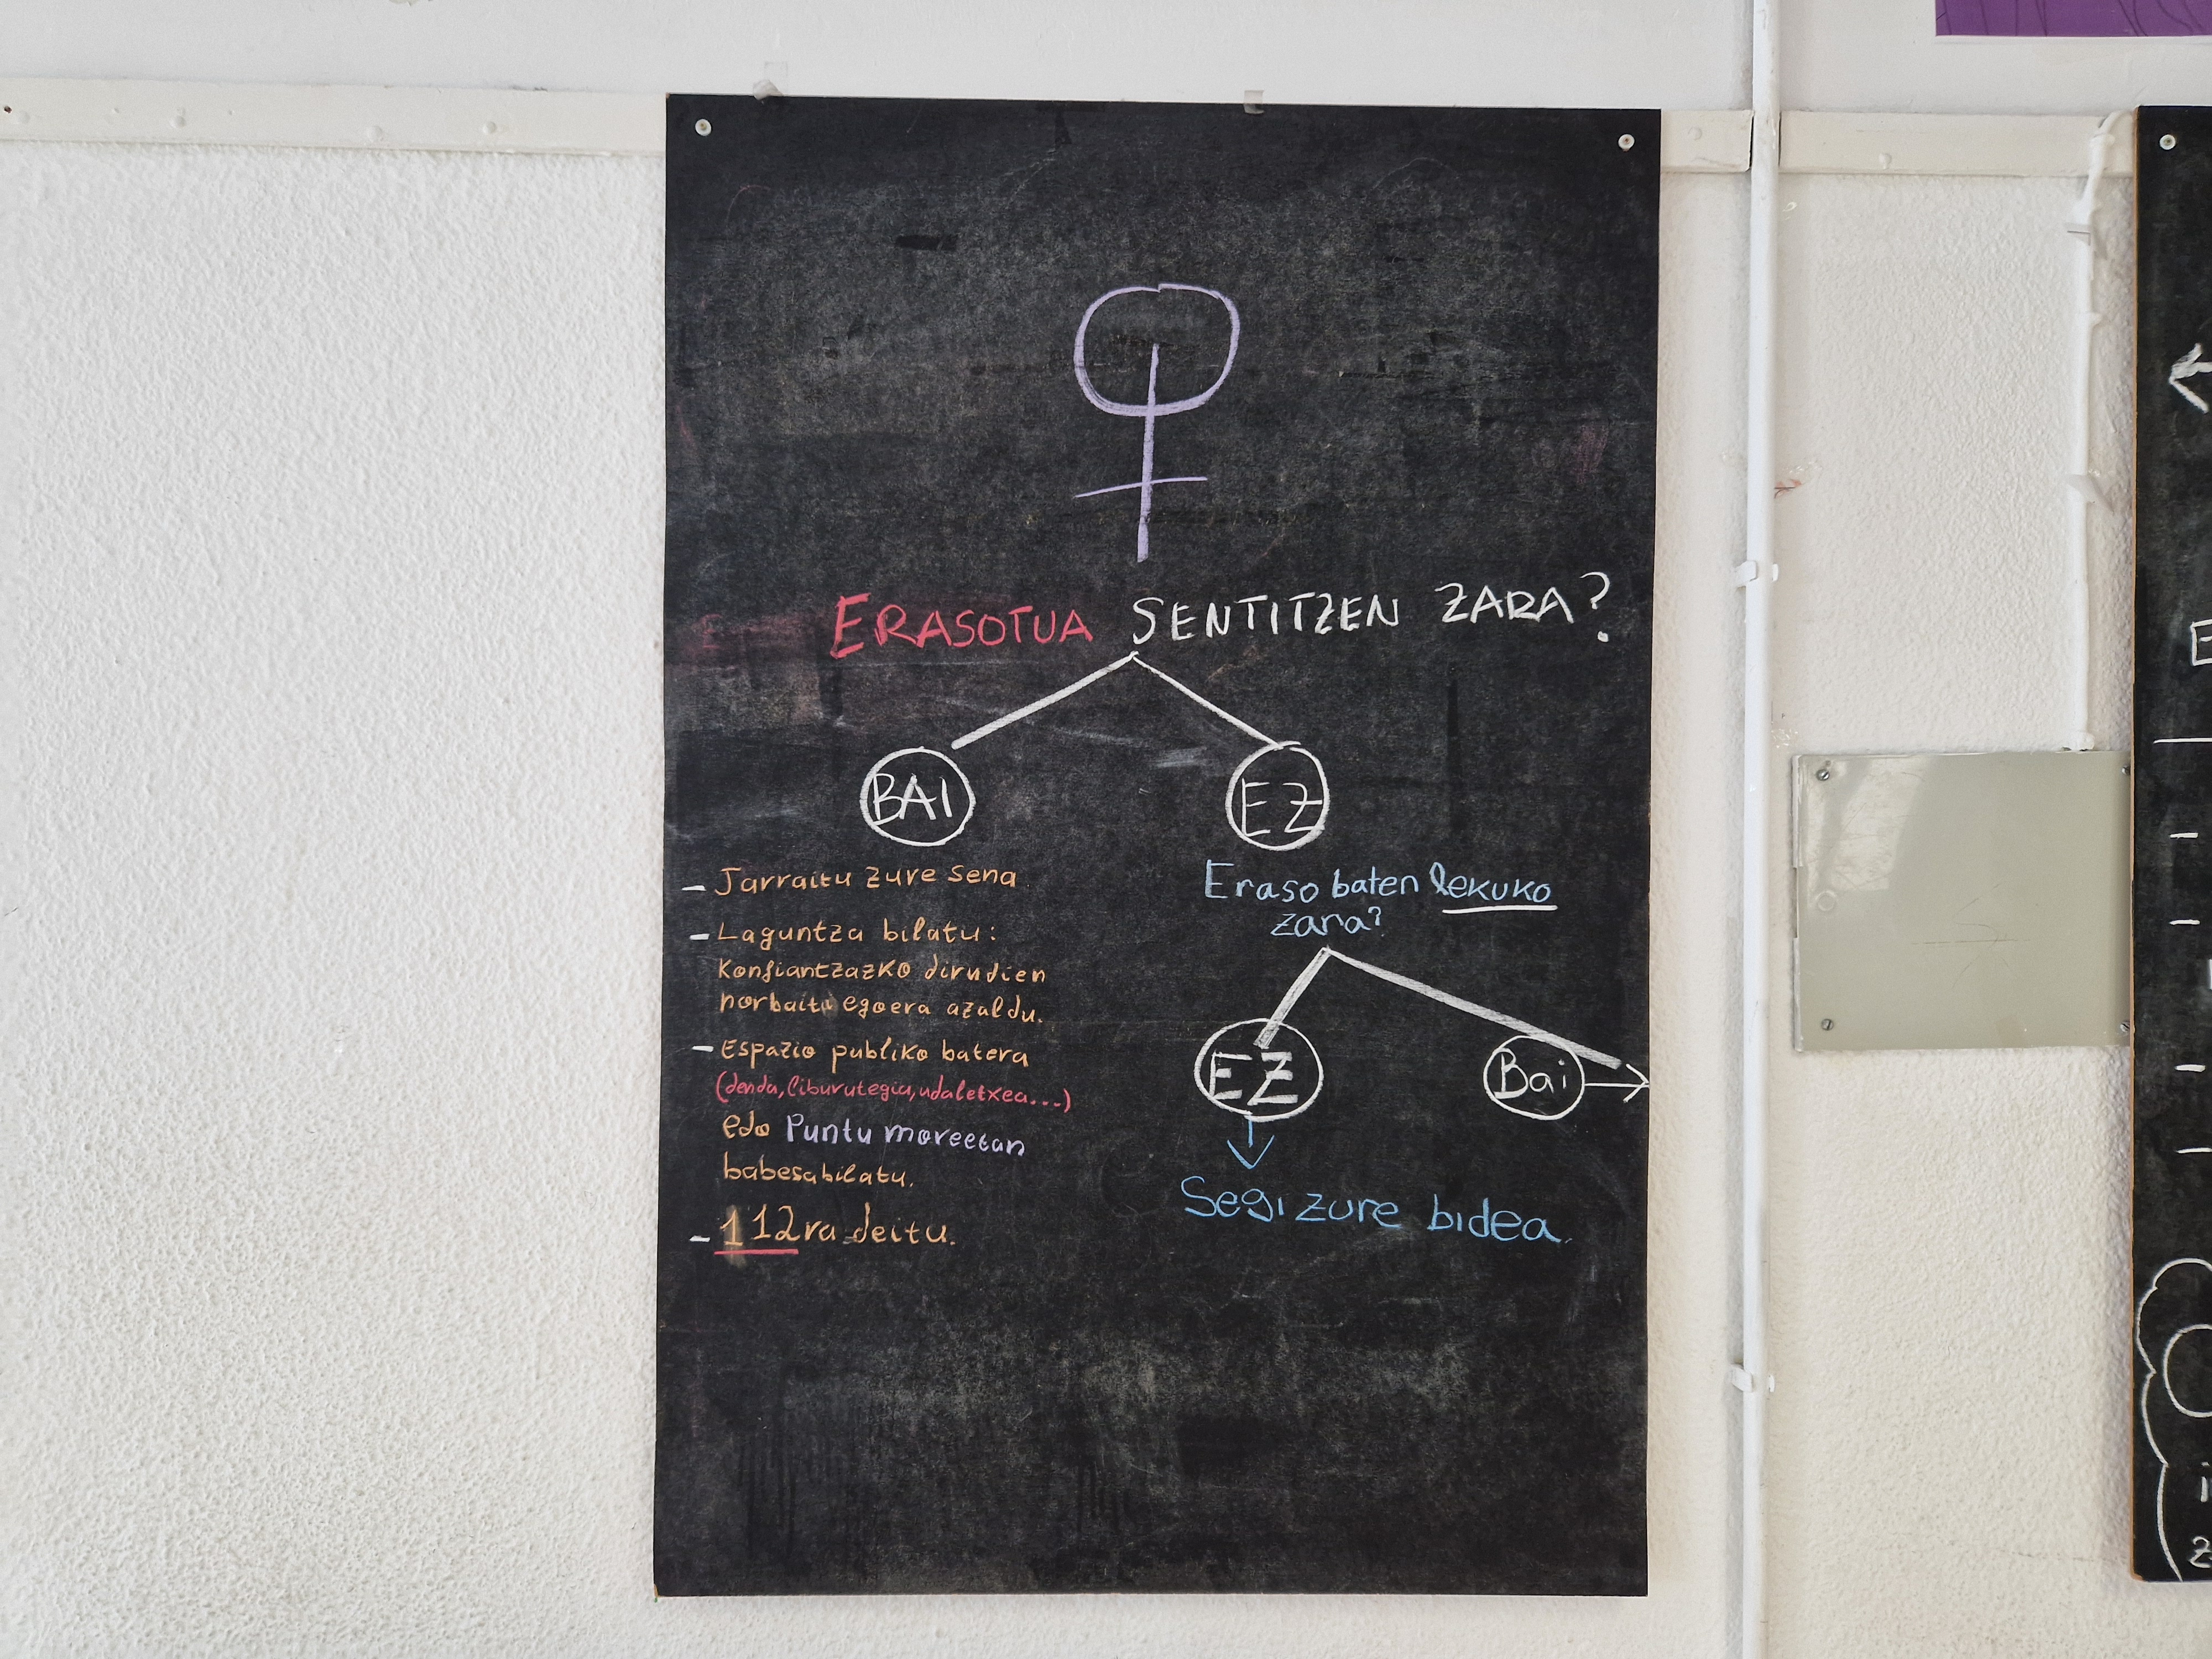 ERASOTUA SENTITZEN ZARA?
BAI
EZ
- Jarraitu zure sena
- Laguntza bilatu:
Konfiantzazko dirudien
norbaiti egoera azaldu.
- Espazio publiko batera
(denda, liburutegia, udaletxea...)
edo Puntu moreetan
babesa bilatu.
- 112ra deitu.
Eraso baten lekuko
zara?
EZ
Bai
Segi zure bidea.